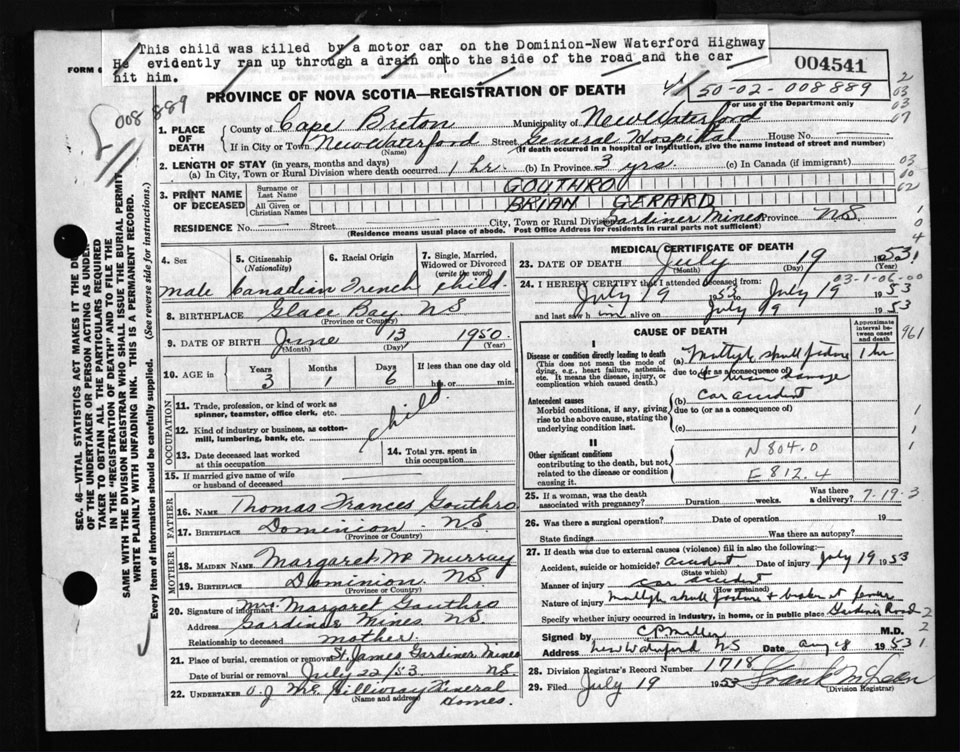 This child was killed by a motor car on the Dominion-New Waterford Highway
He evidently ran up through a drain onto the side of the road and the car
hit him.
FORM 6
004541
50-02-008889
For use of the Department only
008889
PROVINCE OF NOVA SCOTIA—REGISTRATION OF DEATH
1. PLACE OF DEATH
County of Cape Breton Municipality of New Waterford
If in City or Town New Waterford Street General Hospital House No.
(Name) (If death occurred in a hospital or institution, give the name instead of street and number)
2. LENGTH OF STAY (in years, months and days)
(a) In City, Town or Rural Division where death occurred 1 hr. (b) In Province 3 yrs. (c) In Canada (if immigrant)
3. PRINT NAME OF DECEASED
Surname or Last Name GOUTHRO
All Given or Christian Names BRIAN GERARD
RESIDENCE No. Street City, Town or Rural Division Gardiner Mines Province NS
(Residence means usual place of abode. Post Office Address for residents in rural parts not sufficient)
4. Sex male
5. Citizenship (Nationality) Canadian
6. Racial Origin French
7. Single, Married, Widowed or Divorced (write the word) Child.
8. BIRTHPLACE Glace Bay NS
(Province or Country)
9. DATE OF BIRTH June 13 1950
(Month) (Day) (Year)
10. AGE in Years 3 Months 1 Days 6 If less than one day old hrs. or min.
OCCUPATION
11. Trade, profession, or kind of work as spinner, teamster, office clerk, etc.
child.
12. Kind of industry or business, as cotton-mill, lumbering, bank, etc.
13. Date deceased last worked at this occupation
14. Total yrs. spent in this occupation
15. If married give name of wife or husband of deceased
FATHER
16. NAME Thomas Frances Gouthro
17. BIRTHPLACE Dominion NS
(Province or Country)
MOTHER
18. MAIDEN NAME Margaret Mc Murray
19. BIRTHPLACE Dominion. NS
(Province or Country)
20. Signature of informant Mrs. Margaret Gouthro
Address Gardiner Mines NS.
Relationship to deceased mother.
21. Place of burial, cremation or removal St. James Gardiner Mines
Date of burial or removal July 22/53 NS.
22. UNDERTAKER O.J. McGillivray Funeral Homes.
(Name and address)
MEDICAL CERTIFICATE OF DEATH
23. DATE OF DEATH July 19 1953
(Month) (Day) (Year)
24. I HEREBY CERTIFY that I attended deceased from:
July 19 1953 to July 19 1953
03-1-06-00
and last saw him alive on July 19 1953
CAUSE OF DEATH
Approximate interval between onset and death
961
I
Disease or condition directly leading to death
(This does not mean the mode of dying, e.g., heart failure, asthenia, etc. It means the disease, injury, or complication which caused death.)
(a) Multiple skull fracture 1 hr
due to (or as a consequence of)
Antecedent causes
Morbid conditions, if any, giving rise to the above cause, stating the underlying condition last.
(b) car accident
due to (or as a consequence of)
(c)
II
Other significant conditions
contributing to the death, but not related to the disease or condition causing it.
N 804.0
E 812.4
25. If a woman, was the death associated with pregnancy? Duration weeks. Was there a delivery?
7-19-3
26. Was there a surgical operation? Date of operation 19
State findings Was there an autopsy?
27. If death was due to external causes (violence) fill in also the following:—
Accident, suicide or homicide? accident Date of injury July 19 1953
(State which)
Manner of injury car accident
(How sustained)
Nature of injury multiple skull fracture &
Specify whether injury occurred in industry, in home, or in public place Gardiner Road
Signed by M.D.
Address New Waterford NS Date Aug 8 1953
28. Division Registrar's Record Number 1718
29. Filed July 19 1953
(Division Registrar)
SEC. 46—VITAL STATISTICS ACT MAKES IT THE DU
OF THE UNDERTAKER OR PERSON ACTING AS UNDER
TAKER TO OBTAIN ALL THE PARTICULARS REQUIRED
IN THE "REGISTRATION OF DEATH" AND TO FILE THE
SAME WITH THE DIVISION REGISTRAR WHO SHALL ISSUE THE BURIAL PERMIT.
WRITE PLAINLY WITH UNFADING INK. THIS IS A PERMANENT RECORD.
Every item of information should be carefully supplied. (See reverse side for instructions.)